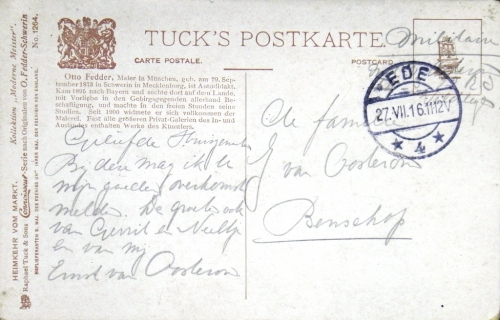 TUCK'S POSTKARTE.
CARTE POSTALE.
POSTCARD
Otto Fedder, Maler in München, geb. am 29. Sep-
tember 1873 in Schwerin in Mecklenburg, ist Autodidakt.
Kam 1895 nach Bayern und siedelte dort auf dem Lande,
mit Vorliebe in den Gebirgsgegenden allerhand Be-
schäftigung, und machte in den freien Stunden seine
Studien. Seit 1900 widmete er sich vollkommen der
Malerei. Fast alle größeren Privat-Galerien des In- und
Auslandes enthalten Werke des Künstlers.
Kollektion "Moderne Meister"
Raphael Tuck & Sons Connoisseur-Serie nach Originalen von O. Fedder-Schwerin No. 1264.
HEIMKEHR VOM MARKT.
HOFLIEFERANTEN S. MAJ. DES KOENIGS
Militair
EDE
27.VII.16.11-12V
4
Geliefde Huisgenoten
Bij deze mag ik u
mijn goede overkomst
melden. De groeten ook
van Gerrit en Neeltje
en van mij
Ernst van Oosterom
De familie
G van Oosterom
Benschop